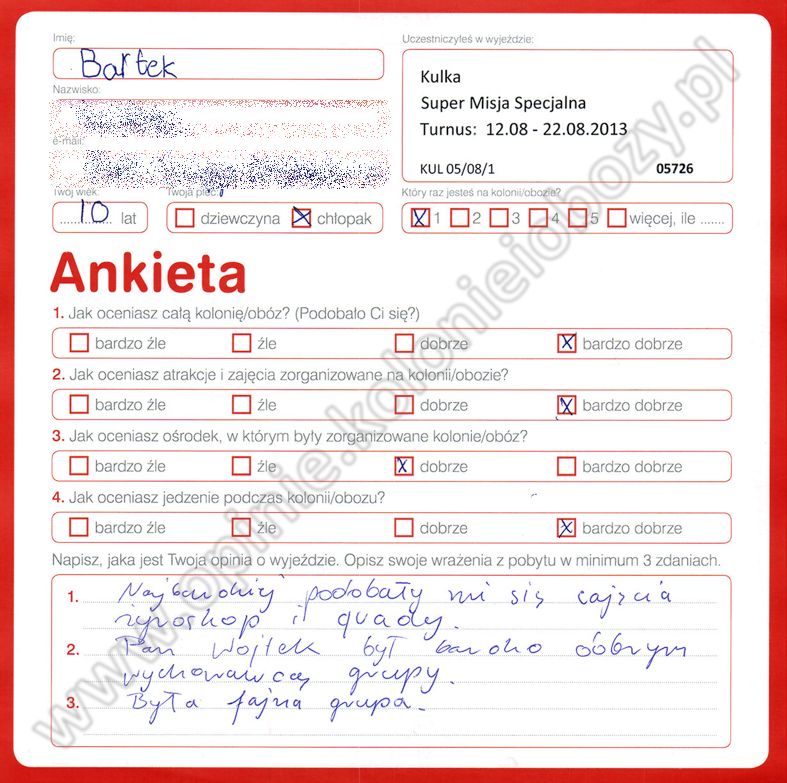 Imię:
Bartek
Uczestniczyłeś w wyjeździe:
Kulka
Super Misja Specjalna
Turnus: 12.08 - 22.08.2013
KUL 05/08/1 05726
Nazwisko:
e-mail:
Twój wiek: Twoja płeć:
10 lat
dziewczyna chłopak
Który raz jesteś na kolonii/obozie?
1 2 3 4 5 więcej, ile .......
Ankieta
1. Jak oceniasz całą kolonię/obóz? (Podobało Ci się?)
bardzo źle źle dobrze bardzo dobrze
2. Jak oceniasz atrakcje i zajęcia zorganizowane na kolonii/obozie?
bardzo źle źle dobrze bardzo dobrze
3. Jak oceniasz ośrodek, w którym były zorganizowane kolonie/obóz?
bardzo źle źle dobrze bardzo dobrze
4. Jak oceniasz jedzenie podczas kolonii/obozu?
bardzo źle źle dobrze bardzo dobrze
Napisz, jaka jest Twoja opinia o wyjeździe. Opisz swoje wrażenia z pobytu w minimum 3 zdaniach.
1. Najbardziej podobały mi się zajęcia
żyroskop i quady.
2. Pan Wojtek był bardzo dobrym
wychowawcą grupy.
3. Była fajna grupa.
www.opinie.kolonieiobozy.pl